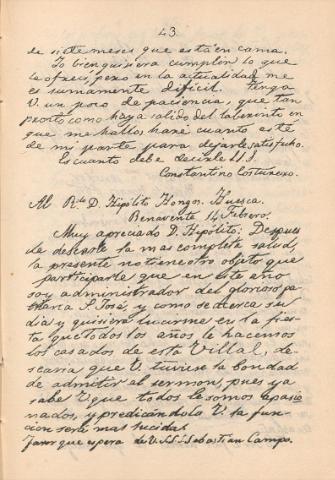 43
de siete meses que está en cama.
Yo bien quisiera cumplir lo que
le ofrecí, pero en la actualidad me
es sumamente difícil. Tenga
V. un poco de paciencia, que tan
pronto como haya salido del laberinto en
que me hallo, haré cuanto esté
de mi parte para dejarle satisfecho.
Es cuanto debe decirle S. S.
Constantino Costurero.
Al Rdo D. Hipólito Hongos. Huesca.
Benavente 14 Febrero.
Muy apreciado D. Hipólito: Despues
de desearle la mas completa salud,
la presente no tiene otro objeto que
participarle que en este año
soy administrador del glorioso pa-
triarca S. José, y como se acerca su
día y quisiera lucirme en la fies-
ta que todos los años le hacemos
los casados de esta Villa, de-
searia que V. tuviese la bondad
de admitir el sermon, pues ya
sabe V. que todos le somos apasio-
nados, y predicándola V. la fun-
cion será mas lucida.
Favor que espera de V. S. S. Sebastian Campo.